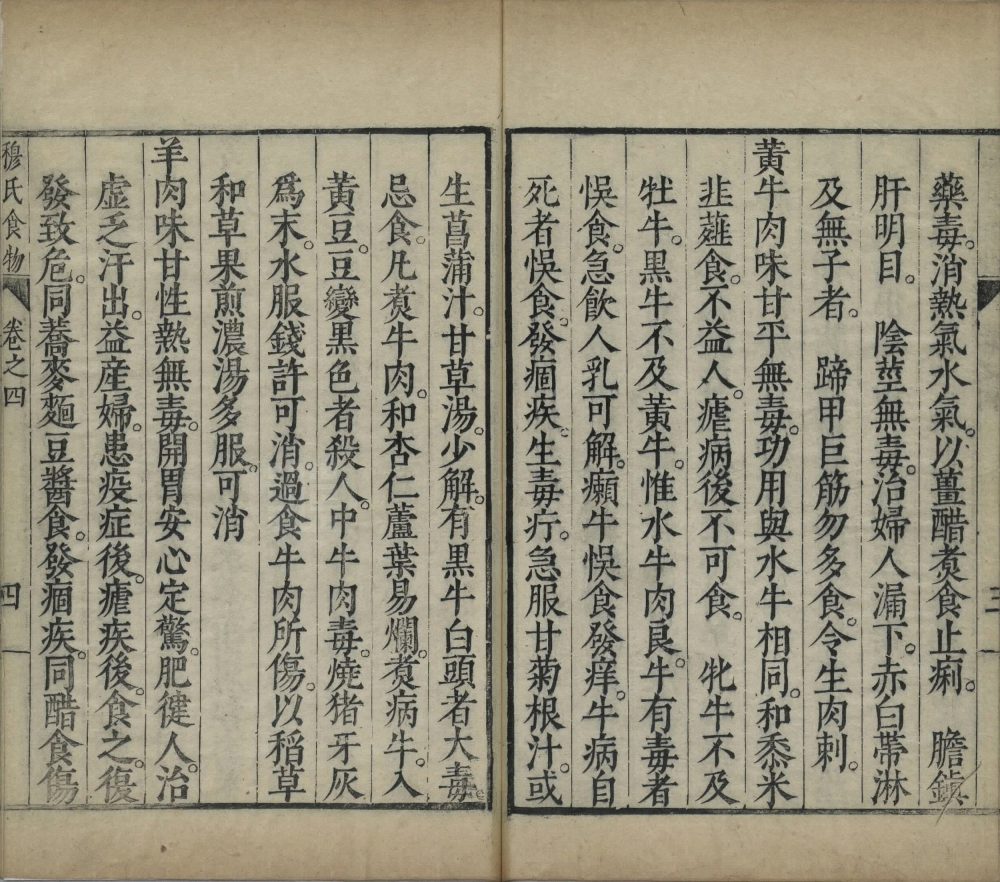 藥毒。消熱氣水氣。以薑醋煑食止痢。　膽鎮
肝明目。　陰莖無毒。治婦人漏下。赤白帶淋
及無子者。　蹄甲巨筋勿多食。令生肉刺。
黃牛肉味甘平無毒。功用與水牛相同。和黍米
韭薤食。不益人。瘧病後不可食。　牝牛不及
牡牛。黑牛不及黃牛。惟水牛肉良。牛有毒者
悞食。急飲人乳可解。癩牛悞食發痒。牛病自
死者悞食。發痼疾。生毒疔。急服甘菊根汁。或
生菖蒲汁。甘草湯。少解。有黑牛白頭者大毒
忌食。凡煑牛肉。和杏仁蘆葉易爛。煑病牛。入
黃豆。豆變黑色者殺人。中牛肉毒。燒猪牙灰
爲末。水服錢許可消。過食牛肉所傷。以稻草
和草果煎濃湯多服。可消
羊肉味甘性熱無毒。開胃安心定驚。肥健人。治
虛乏汗出。益産婦。患疫症後。瘧疾後。食之。復
發致危。同蕎麥麵豆醬食。發痼疾。同醋食傷
穆氏食物　卷之四　四
三